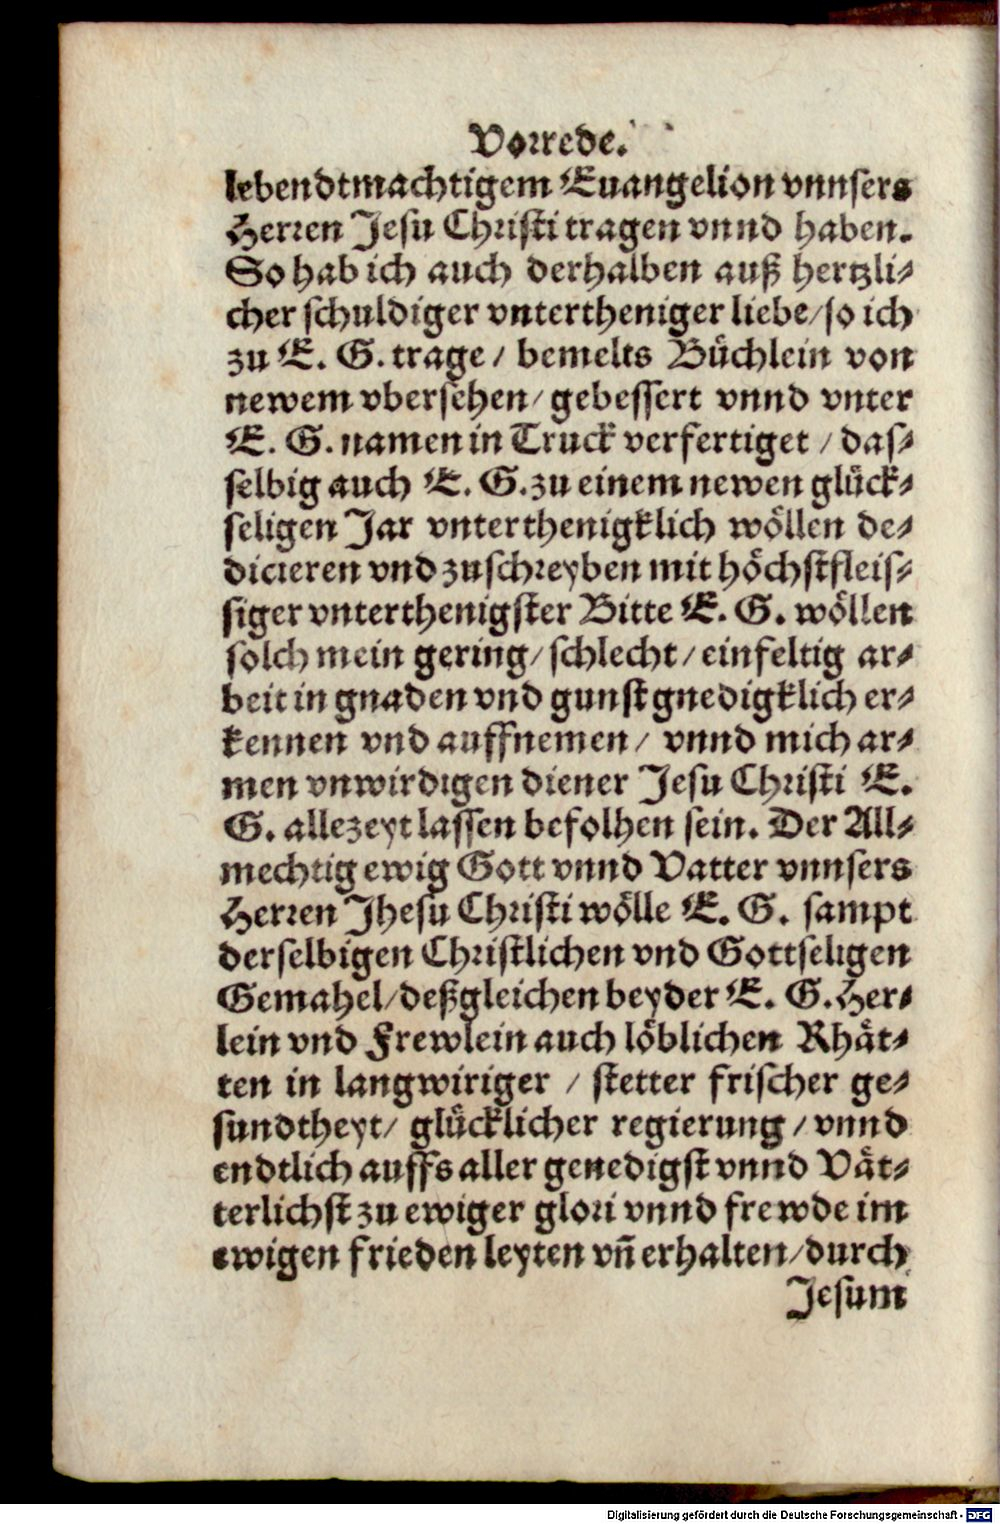 Vorrede.
lebendtmachtigem Euangelion vnnsers
Herren Jesu Christi tragen vnnd haben.
So hab ich auch derhalben auß hertzli-
cher schuldiger vntertheniger liebe/so ich
zu E. G. trage/ bemelts Bůchlein von
newem vbersehen/ gebessert vnnd vnter
E. G. namen in Truck verfertiget / das-
selbig auch E. G. zu einem newen glůck-
seligen Jar vnterthenigklich wöllen de-
dicieren vnd zuschreyben mit höchstfleis-
siger vnterthenigster Bitte E. G. wöllen
solch mein gering/ schlecht/ einfeltig ar-
beit in gnaden vnd gunst gnedigklich er-
kennen vnd auffnemen/ vnnd mich ar-
men vnwirdigen diener Jesu Christi E.
G. allezeyt lassen befolhen sein. Der All-
mechtig ewig Gott vnnd Vatter vnnsers
Herren Jhesu Christi wölle E. G. sampt
derselbigen Christlichen vnd Gottseligen
Gemahel/deßgleichen beyder E. G. Her-
lein vnd Frewlein auch löblichen Rhät-
ten in langwiriger / stetter frischer ge-
sundtheyt/ glücklicher regierung / vnnd
endtlich auffs aller genedigst vnnd Vät-
terlichst zu ewiger glori vnnd frewde im
ewigen frieden leyten vn̄ erhalten/durch
Jesum
Digitalisierung gefördert durch die Deutsche Forschungsgemeinschaft - DFG